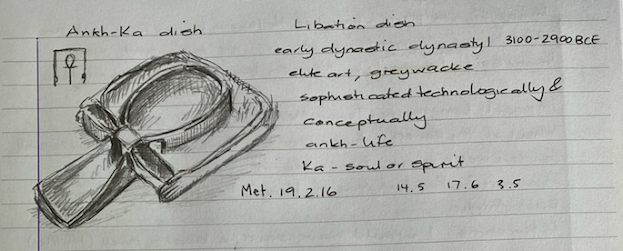 Ankh-Ka dish
Libation dish
early dynastic dynasty 1 3100-2900 BCE
elite art, greywacke
sophisticated technologically &
conceptually
ankh-life
Ka - soul or spirit
Met. 19.2.16 14.5 17.6 3.5